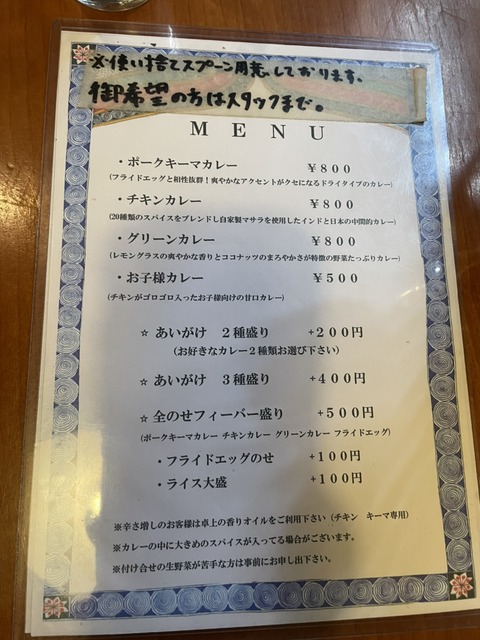 ※使い捨てスプーン用意しております、
御希望の方はスタッフまで。
MENU
・ポークキーマカレー ￥８００
(フライドエッグと相性抜群！爽やかなアクセントがクセになるドライタイプのカレー)
・チキンカレー ￥８００
(20種類のスパイスをブレンドし自家製マサラを使用したインドと日本の中間的カレー)
・グリーンカレー ￥８００
(レモングラスの爽やかな香りとココナッツのまろやかさが特徴の野菜たっぷりカレー)
・お子様カレー ￥５００
(チキンがゴロゴロ入ったお子様向けの甘口カレー)
☆ あいがけ ２種盛り ＋２００円
(お好きなカレー２種類お選び下さい)
☆ あいがけ ３種盛り ＋４００円
☆ 全のせフィーバー盛り ＋５００円
(ポークキーマカレー チキンカレー グリーンカレー フライドエッグ)
・フライドエッグのせ ＋１００円
・ライス大盛 ＋１００円
※辛さ増しのお客様は卓上の香りオイルをご利用下さい（チキン キーマ専用）
※カレーの中に大きめのスパイスが入ってる場合がございます。
※付け合せの生野菜が苦手な方は事前にお申し出下さい。